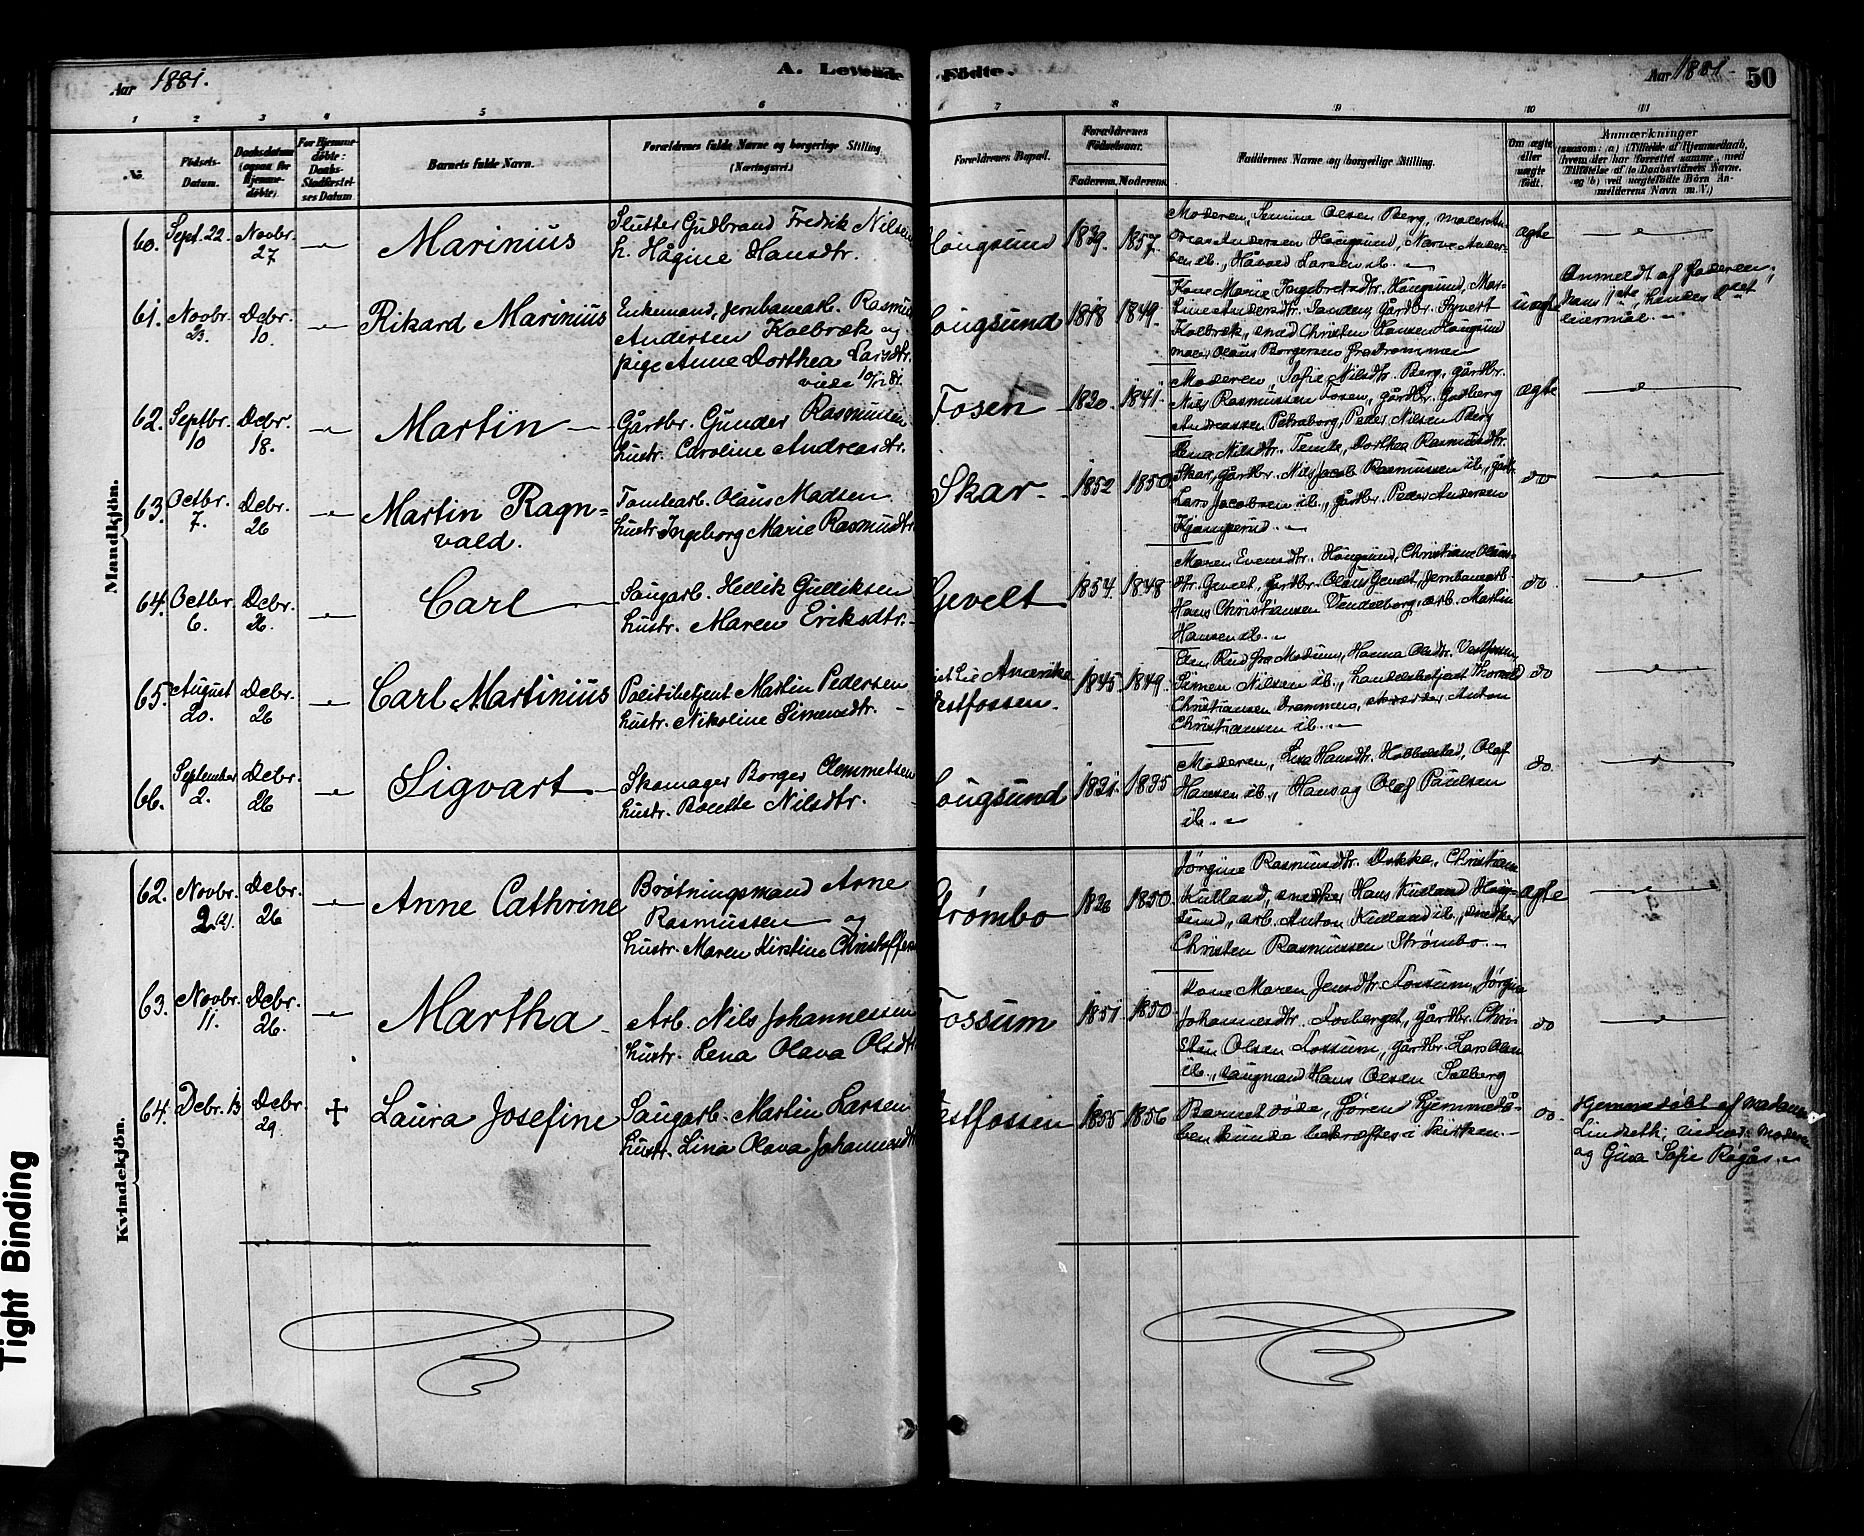 Aar 1881. A. Levende Fødte. Aar 1881. 50
1 2 3 4 5 6 7 8 9 10 11
No.
Fødsels-
Datum.
Daabsdatum
(ogsaa for
Hjemme-
døbte).
For Hjemme-
døbte:
Daabs-
Stadfæstel-
ses Datum
Barnets fulde Navn.
Forældrenes fulde Navne og borgerlige Stilling
(Næringsvei.)
Forældrenes Bopæl.
Forældrenes
Fødselsaar.
Faderens. Moderens.
Faddernes Navne og borgerlige Stilling.
Om ægte
eller
uægte
født.
Anmærkninger
(saasom: a) i Tilfælde af Hjemmedaab,
hvem der har forrettet samme, med
Tilføielse af to Daabsvidners Navne.
og b) ved uægtefødte Børn An-
melderens Navn (m. V.)
Mandkjøn.
60. Sept. 22. Novbr. 27 Marinius
Slutter Gudbrand Fredrik Nilsen
h. Hågine Hansdtr.
Hougsund 1839. 1857.
Moderen, Semine Olsen Berg, maler An-
dreas Andersen Hougsund, Narve Ander-
sen ib., Håvald Larsen ib.
ægte
61. Novbr. 23. Debr. 10. Rikard Marinius
Enkemand, Jernbanearb. Rasmus
Andersen Kolbræk og
pige Anne Dorthea Larsdtr.
viede 10/12 81.
Hougsund 1818 1849.
Kone Marie Ingebretsdtr. Hougsund, Mar-
tine Andersdtr. Sanden, Gårdbr. Syvert
Kolbræk, smed Christen Hansen Hougsund
maler Olaus Borgersen fra Drammen
uægte
Anmeldt af faderen;
hans 1ste, hendes 2det
leiermål.
62. Septbr. 10 Debr. 18. Martin
Gårdbr. Gunder Rasmussen
hustr. Caroline Andreasdtr.
Fosen 1820. 1841.
Moderen, Sofie Nilsdtr. Berg, gårdbr.
Nils Rasmussen Fosen, gårdbr. Gulberg
Andreassen Petraborg, Peder Nilsen Berg
ægte
63. Octbr. 7. Debr. 26 Martin Ragn=
vald.
Tomtearb. Olaus Madsen
hustr. Ingeborg Marie Rasmusdtr.
Skar. 1852 1850
Lena Nilsdtr. Temte, Dorthea Rasmusdtr.
Skar, gårdbr. Nils Jacob Rasmussen ib., gårdbr.
Lars Jacobsen ib., gårdbr. Peder Andersen
Kjamperud.
do
64. Octbr. 6. Debr. 26. Carl
Saugarb. Hellik Gulliksen
hustr. Maren Eriksdtr.
Gevelt 1854. 1848
Maren Evensdtr. Hougsund, Christiane Olaus-
dtr. Gevelt, gårdbr. Olaus Gevelt, Jernbanearb.
Hans Christiansen Vendelborg, arb. Martin
Hansen ib.
do.
65. August 20. Debr. 26 Carl Martinius
Politibetjent Martin Pedersen
hustr. Nikoline Simensdtr.
Amerika
Vestfossen. 1845 1849.
Elen Rud fra Modum, Hanna Olsdtr. Vestfossen
Simen Nilsen ib., handelsbetjent Thorvald
Christiansen Drammen, skræder Anton
Christiansen ib.
do
66. September 2. Debr. 26 Sigvart
Skomager Borger Clemmetsen
hustr. Bolette Nilsdtr.
Hougsund 1821. 1835
Moderen, Lisa Hansdtr. Hobbelstad, Olaf
Hansen ib., Hans og Olaf Paulsen
ib.
do.
Kvindekjøn.
62. Novbr. 2 Debr. 26 Anne Cathrine
Brøtningsmand Arne
Rasmussen og
hustr. Maren Kirstine Christoffers
Strømbo 1826 1850.
Jørgine Rasmusdtr. Dokka, Christiane
Kulland, snedker Hans Kulland Houg-
sund, arb. Anton Kulland ib., snedker
Christen Rasmussen Strømbo.
ægte
63. Novbr. 11. Debr. 26. Martha
Arb. Nils Johannessen
hustr. Lena Olava Olsdtr
Fossum 1851 1850
Kone Maren Jensdtr. Fossum, Jørgine
Johannesdtr. Fosberget, gårdbr. Chri-
sten Olsen Fossum, gårdbr. Lars Olsen
ib., saugmand Hans Olsen Solberg
do
64. Debr. 13 Debr. 29. Laura Josefine
Saugarb. Martin Larsen
hustr. Lina Olava Johannesdtr
Vestfossen 1855 1856
Barnet døde, førend hjemmedå-
ben kunde bekræftes i kirken.
do.
Hjemmedøbt af madame
Lindseth; vidner: moderen
og Gina Sofie Rogås.
Tight Binding